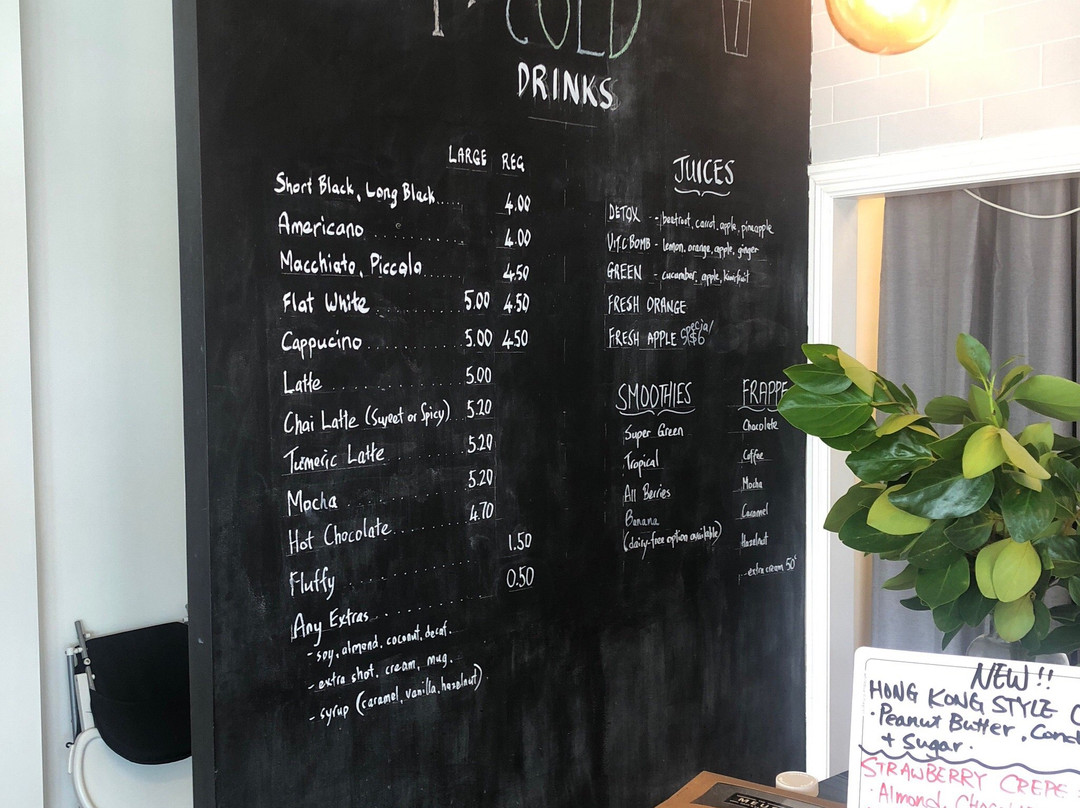 COLD
DRINKS
LARGE REG
Short Black, Long Black..... 4.00
Americano .............. 4.00
Macchiato, Piccolo ...... 4.50
Flat White ............ 5.00 4.50
Cappucino ............ 5.00 4.50
Latte .................. 5.00
Chai Latte (Sweet or Spicy) 5.20
Tumeric Latte .......... 5.20
Mocha ................ 5.20
Hot Chocolate .......... 4.70
Fluffy ................ 1.50
Any Extras .............. 0.50
- soy, almond, coconut, decaf.
- extra shot, cream, mug.
- syrup (caramel, vanilla, hazelnut)
JUICES
DETOX -- beetroot, carrot, apple, pineapple
VIT.C BOMB - lemon, orange, apple, ginger
GREEN - cucumber, apple, kiwifruit
FRESH ORANGE
FRESH APPLE special $6
SMOOTHIES
Super Green
Tropical
All Berries
Banana
(dairy-free option available)
FRAPPE
Chocolate
Coffee
Mocha
Caramel
Hazelnut
... extra cream 50c
NEW!!
HONG KONG STYLE
· Peanut Butter, Cond
+ Sugar.
STRAWBERRY CREPE
· Almond,